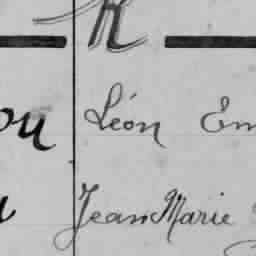 K
ou Léon Em
Jean Marie